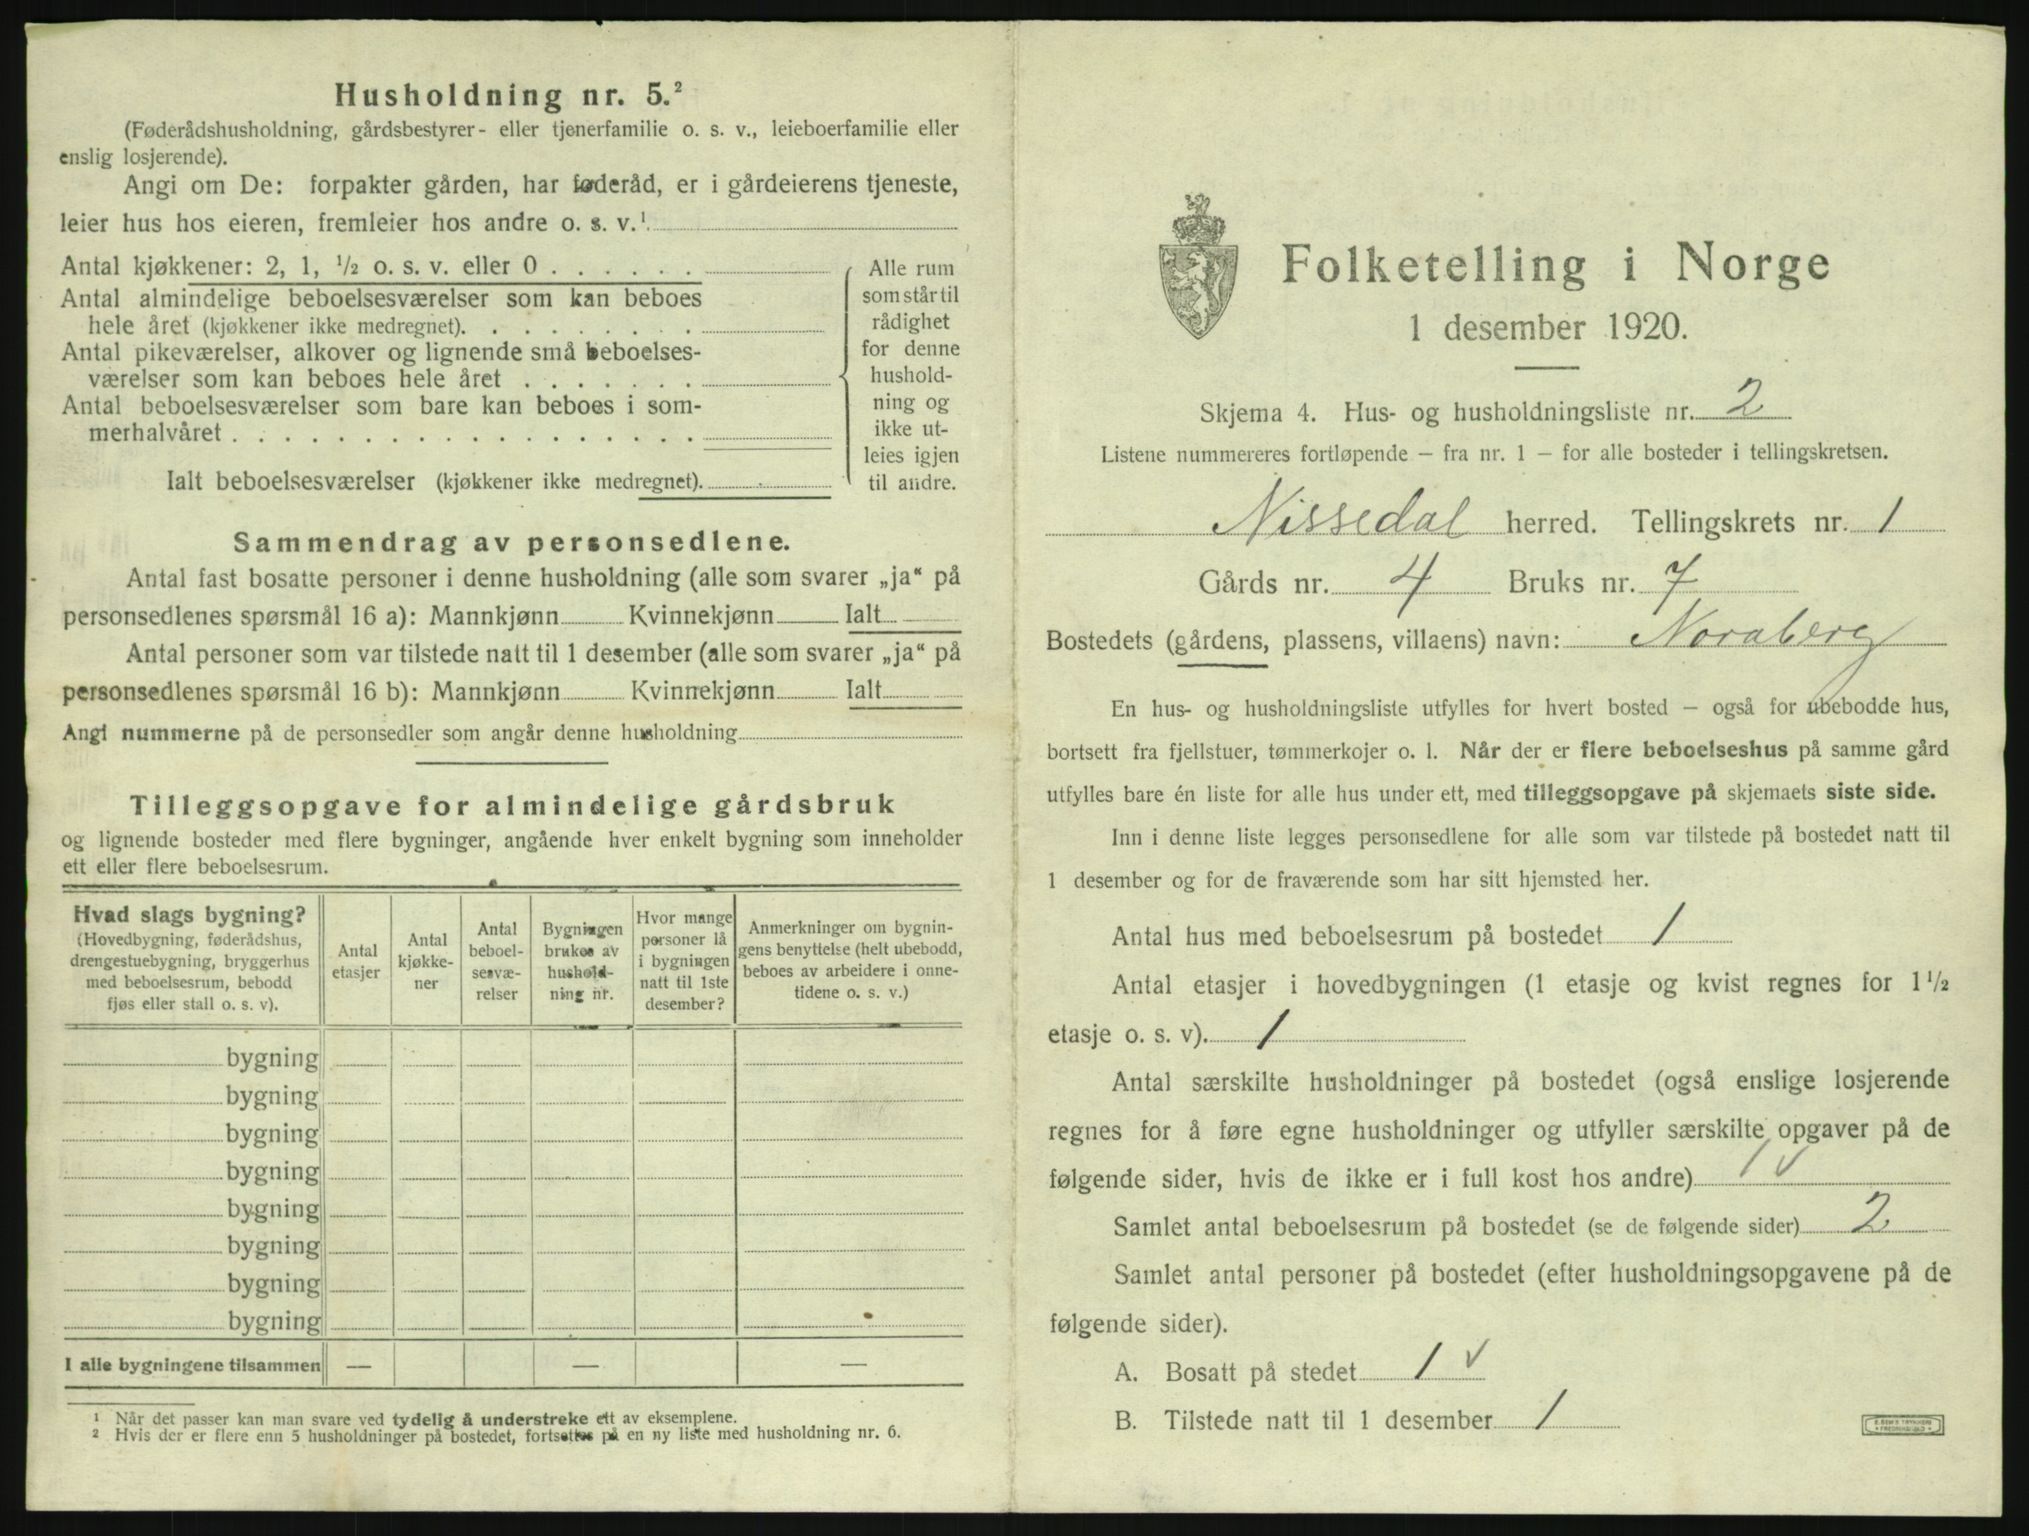 Husholdning nr. 5.²
(Føderådshusholdning, gårdsbestyrer- eller tjenerfamilie o. s. v., leieboerfamilie eller
enslig losjerende).
Angi om De: forpakter gården, har føderåd, er i gårdeierens tjeneste,
leier hus hos eieren, fremleier hos andre o. s. v.¹
Antal kjøkkener: 2, 1, ½ o. s. v. eller 0 . . . . . .
Antal almindelige beboelsesværelser som kan beboes
hele året (kjøkkener ikke medregnet). . . . . . . . .
Antal pikeværelser, alkover og lignende små beboelses-
værelser som kan beboes hele året . . . . . . .
Antal beboelsesværelser som bare kan beboes i som-
merhalvåret . . . . . . . . . . . . . . . . . .
Ialt beboelsesværelser (kjøkkener ikke medregnet).
Alle rum
som står til
rådighet
for denne
hushold-
ning og
ikke ut-
leies igjen
til andre.
Sammendrag av personsedlene.
Antal fast bosatte personer i denne husholdning (alle som svarer „ja“ på
personsedlenes spørsmål 16 a): Mannkjønn Kvinnekjønn Ialt
Antal personer som var tilstede natt til 1 desember (alle som svarer „ja“ på
personsedlenes spørsmål 16 b): Mannkjønn Kvinnekjønn Ialt
Angi nummerne på de personsedler som angår denne husholdning
Tilleggsopgave for almindelige gårdsbruk
og lignende bosteder med flere bygninger, angående hver enkelt bygning som inneholder
ett eller flere beboelsesrum.
Hvad slags bygning?
(Hovedbygning, føderådshus,
drengestuebygning, bryggerhus
med beboelsesrum, bebodd
fjøs eller stall o. s. v).
Antal
etasjer
Antal
kjøkke-
ner
Antal
beboel-
sesvæ-
relser
Bygningen
brukes av
hushold-
ning nr.
Hvor mange
personer lå
i bygningen
natt til 1ste
desember?
Anmerkninger om bygnin-
gens benyttelse (helt ubebodd,
beboes av arbeidere i onne-
tidene o. s. v.)
bygning
bygning
bygning
bygning
bygning
bygning
bygning
bygning
I alle bygningene tilsammen — — —
¹ Når det passer kan man svare ved tydelig å understreke ett av eksemplene.
² Hvis der er flere enn 5 husholdninger på bostedet, fortsettes på en ny liste med husholdning nr. 6.
Folketelling i Norge
1 desember 1920.
Skjema 4. Hus- og husholdningsliste nr. 2
Listene nummereres fortløpende – fra nr. 1 – for alle bosteder i tellingskretsen.
Nissedal herred. Tellingskrets nr. 1
Gårds nr. 4 Bruks nr. 7
Bostedets (gårdens, plassens, villaens) navn: Noraberg
En hus- og husholdningsliste utfylles for hvert bosted – også for ubebodde hus,
bortsett fra fjellstuer, tømmerkojer o. l. Når der er flere beboelseshus på samme gård
utfylles bare én liste for alle hus under ett, med tilleggsopgave på skjemaets siste side.
Inn i denne liste legges personsedlene for alle som var tilstede på bostedet natt til
1 desember og for de fraværende som har sitt hjemsted her.
Antal hus med beboelsesrum på bostedet 1
Antal etasjer i hovedbygningen (1 etasje og kvist regnes for 1½
etasje o. s. v). 1
Antal særskilte husholdninger på bostedet (også enslige losjerende
regnes for å føre egne husholdninger og utfyller særskilte opgaver på de
følgende sider, hvis de ikke er i full kost hos andre) 1 v
Samlet antal beboelsesrum på bostedet (se de følgende sider) 2
Samlet antal personer på bostedet (efter husholdningsopgavene på de
følgende sider).
A. Bosatt på stedet 1 v
B. Tilstede natt til 1 desember 1